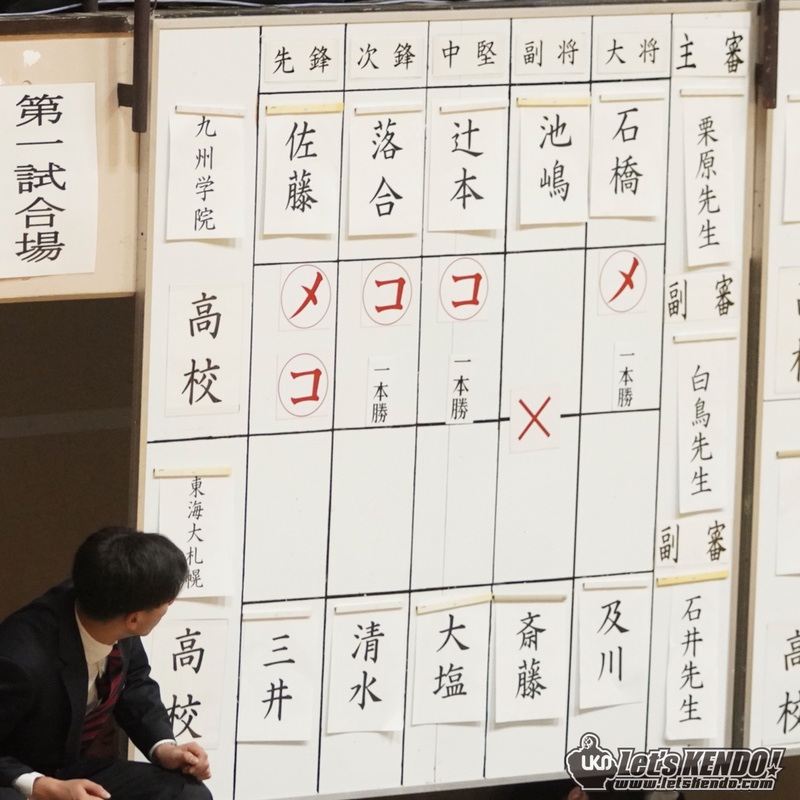 第一試合場
先鋒 次鋒 中堅 副将 大将 主審
九州学院 高校
佐藤 落合 辻本 池嶋 石橋
栗原先生
メ コ コ メ
コ 一本勝 一本勝 × 一本勝
副審
白鳥先生
東海大札幌 高校
三井 清水 大塩 斎藤 及川
副審
石井先生
高校
高校
UKD Let's KENDO!
www.letskendo.com